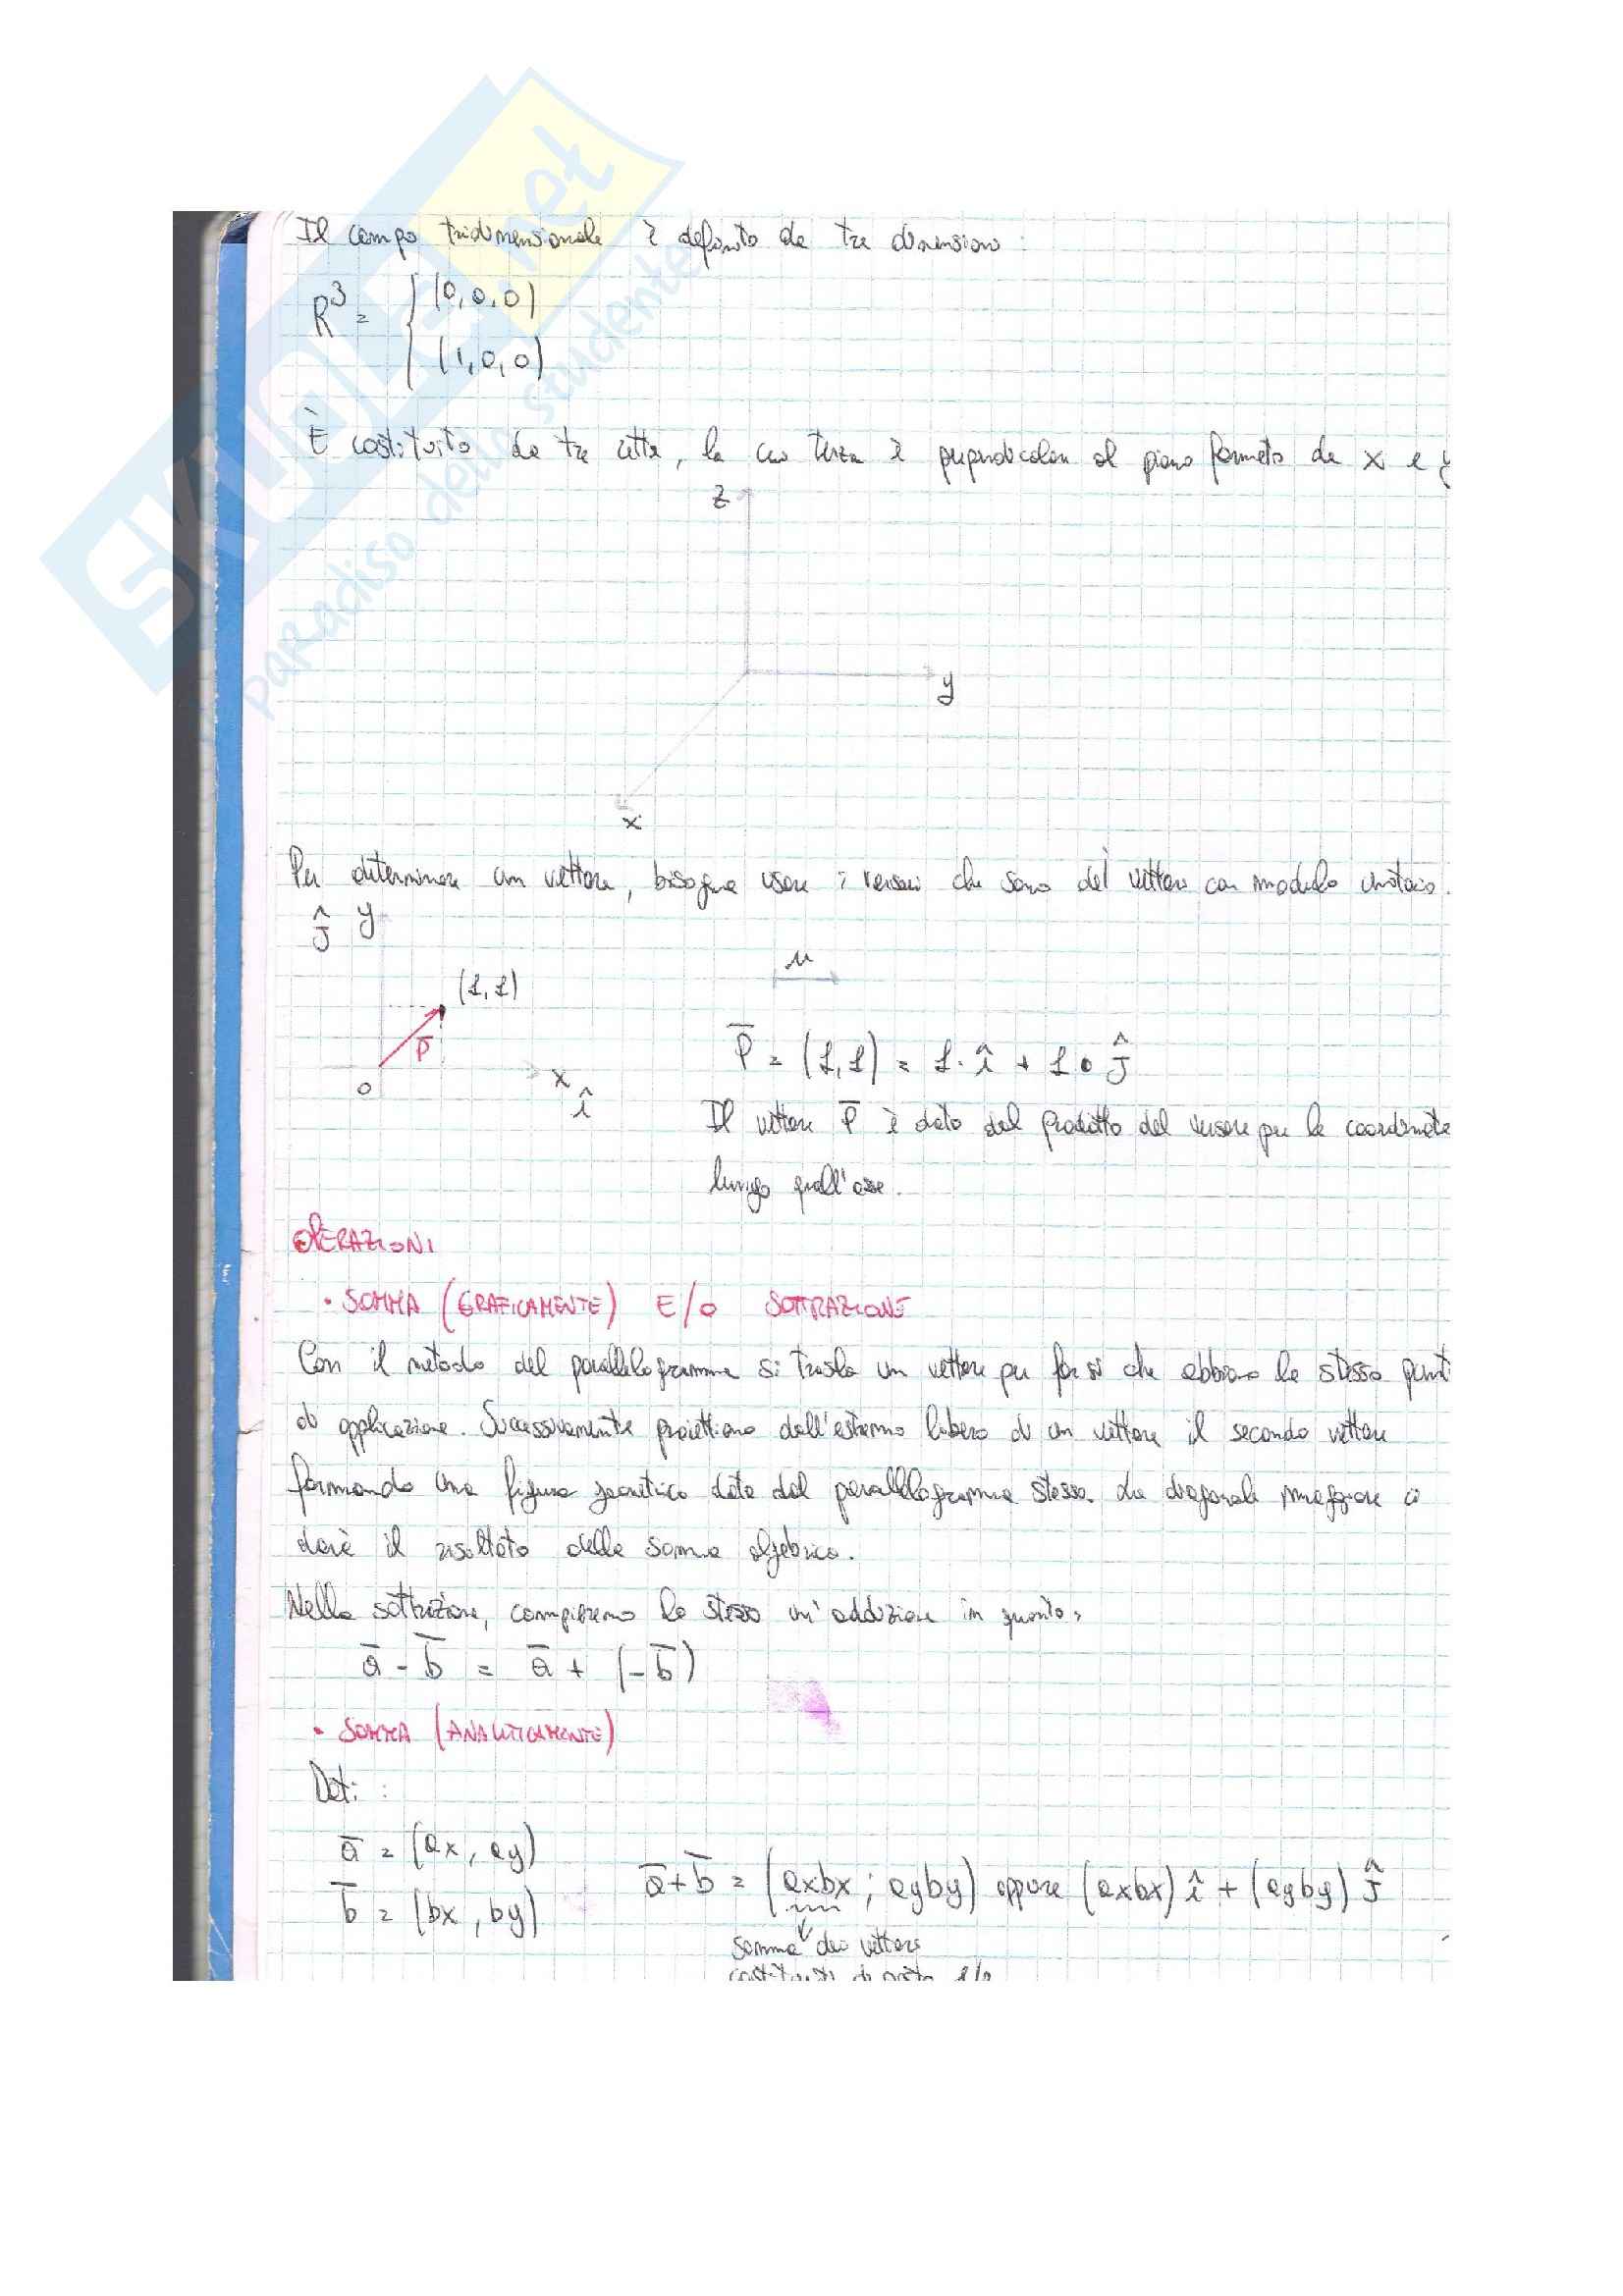 Skuola.net
paradiso dello studente
Il campo tridimensionale è definito da tre dimensioni:
R³ = { (0,0,0)
(1,0,0)
È costituito da tre rette, la cui terza è perpendicolare al piano formato da x e y
z
y
x
Per determinare un vettore, bisogna usare i versori che sono dei vettori con modulo unitario.
ĵ y
u
(1,1)
p̅
o
x
î
P̅ = (1,1) = 1· î + 1 • ĵ
Il vettore P̅ è dato dal prodotto del versore per le coordinate
lungo quell'asse.
OPERAZIONI
• SOMMA (GRAFICAMENTE) E/O SOTTRAZIONE
Con il metodo del parallelogramma si trasla un vettore per far sì che abbiano lo stesso punt
di applicazione. Successivamente proiettiamo dall'estremo libero di un vettore il secondo vettore
formando una figura geometrica data dal parallelogramma stesso. La diagonale maggiore ci
darà il risultato della somma algebrica.
Nella sottrazione, compiremo lo stesso un'addizione in quanto,
a̅ - b̅ = a̅ + (-b̅)
• SOMMA (ANALITICAMENTE)
Dati:
a̅ = (ax, ay)
b̅ = (bx, by)
a̅+b̅ = (axbx ; ayby) oppure (axbx) î + (ayby) ĵ
somma dei vettori